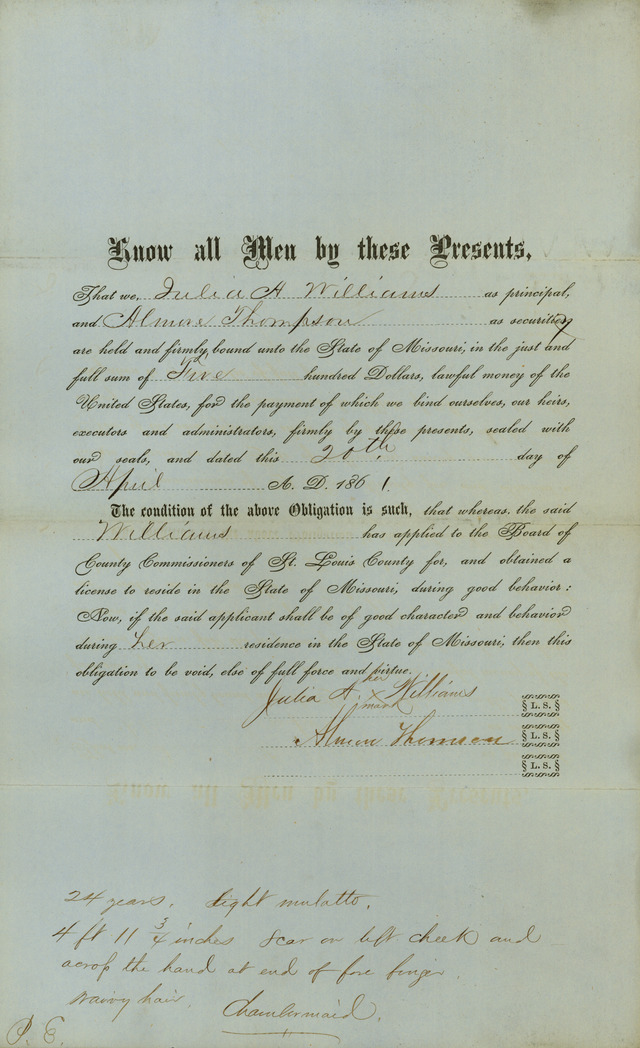 Know all Men by these Presents,
That we, Julia A Williams as principal,
and Almon Thompson as securities
are held and firmly bound unto the State of Missouri, in the just and
full sum of Five hundred Dollars, lawful money of the
United States, for the payment of which we bind ourselves, our heirs,
executors and administrators, firmly by these presents, sealed with
our seals, and dated this 20th day of
April A. D. 1861.
The condition of the above Obligation is such, that whereas, the said
Williams has applied to the Board of
County Commissioners of St. Louis County for, and obtained a
license to reside in the State of Missouri, during good behavior:
Now, if the said applicant shall be of good character and behavior
during her residence in the State of Missouri, then this
obligation to be void, else of full force and virtue.
her
Julia A. x Williams § L. S. §
mark
Almon Thomson § L. S. §
§ L. S. §
24 years. light mulatto.
4 ft 11 3/4 inches Scar on left cheek and
across the hand at end of fore finger.
wavy hair. Chambermaid.
P. E.